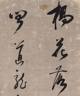 楊花落
聞道龍